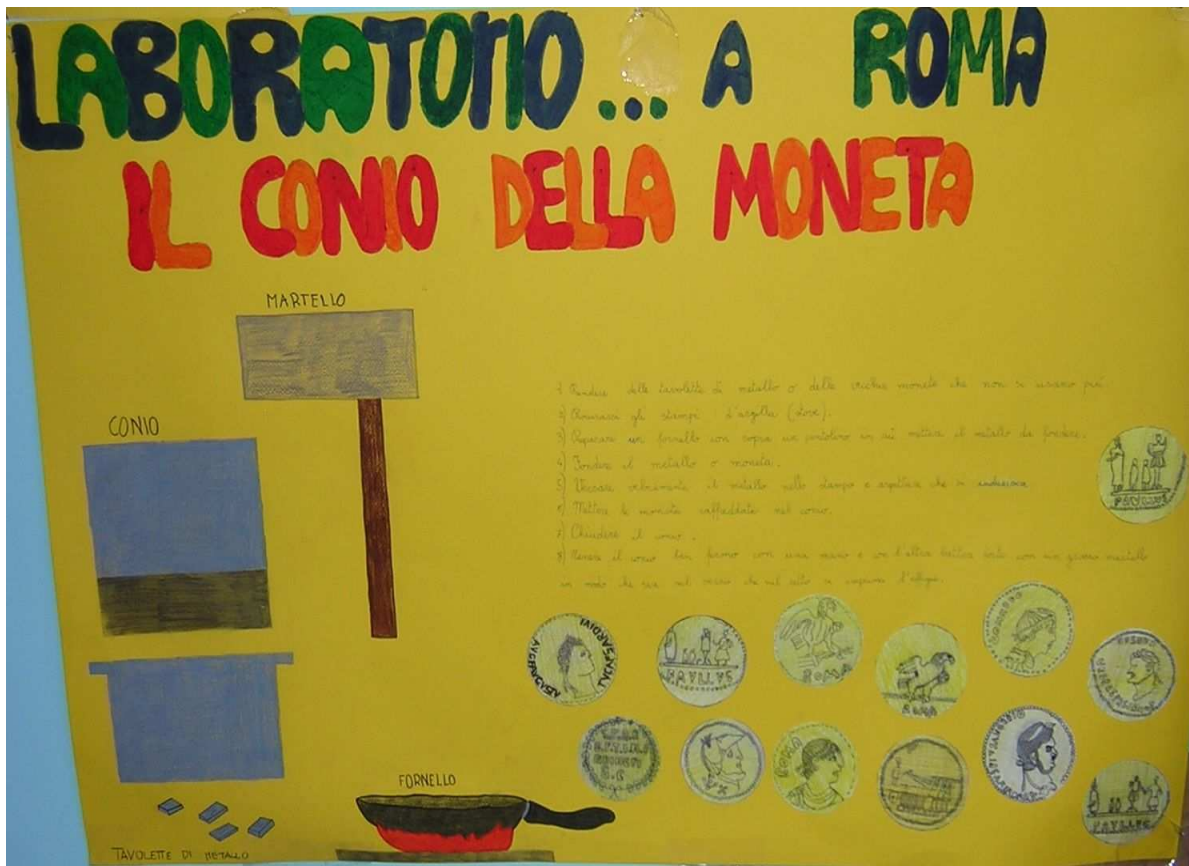 LABORATORIO... A ROMA
IL CONIO DELLA MONETA
MARTELLO
CONIO
1) Prendere delle tavolette di metallo o delle vecchie monete che non si usano più.
2) gli stampi d'argilla (dove).
3) Preparare un fornello con sopra un pentolino in cui mettere il metallo da fondere.
4) Fondere il metallo o moneta.
5) Versare velocemente il metallo nello stampo e aspettare che si indurisca
6) Mettere le monete raffreddate nel conio.
7) Chiudere il conio.
8) Tenere il conio ben fermo con una mano e con l'altra battere forte con un grosso martello
in modo che sia sul verso che sul retto si imprima l'effige.
PAVLLVS
PAVLLVS
ROMA
ROMA
ROMA
PAVLLVS
FORNELLO
TAVOLETTE DI METALLO